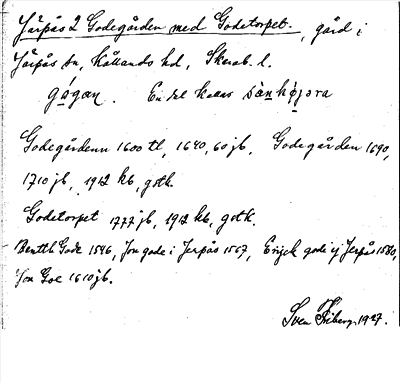 Järpås 2 Godegården med Godetorpet, gård i
Järpås sn, Kållands hd, Skarab. l.
gógan. En del kallas sànhøjara
Godegårdenn 1600 tl, 1640, 60 jb, Godegården 1690,
1710 jb, 1912 kb, gotk.
Godetorpet 1777 jb, 1912 kb, gotk.
Benttb Gode 1546, Jon gode i Jerpås 1567, Erijck gode ij Jerpås 1580,
Jon Goe 1610 jb.
Sven Friberg, 1927.